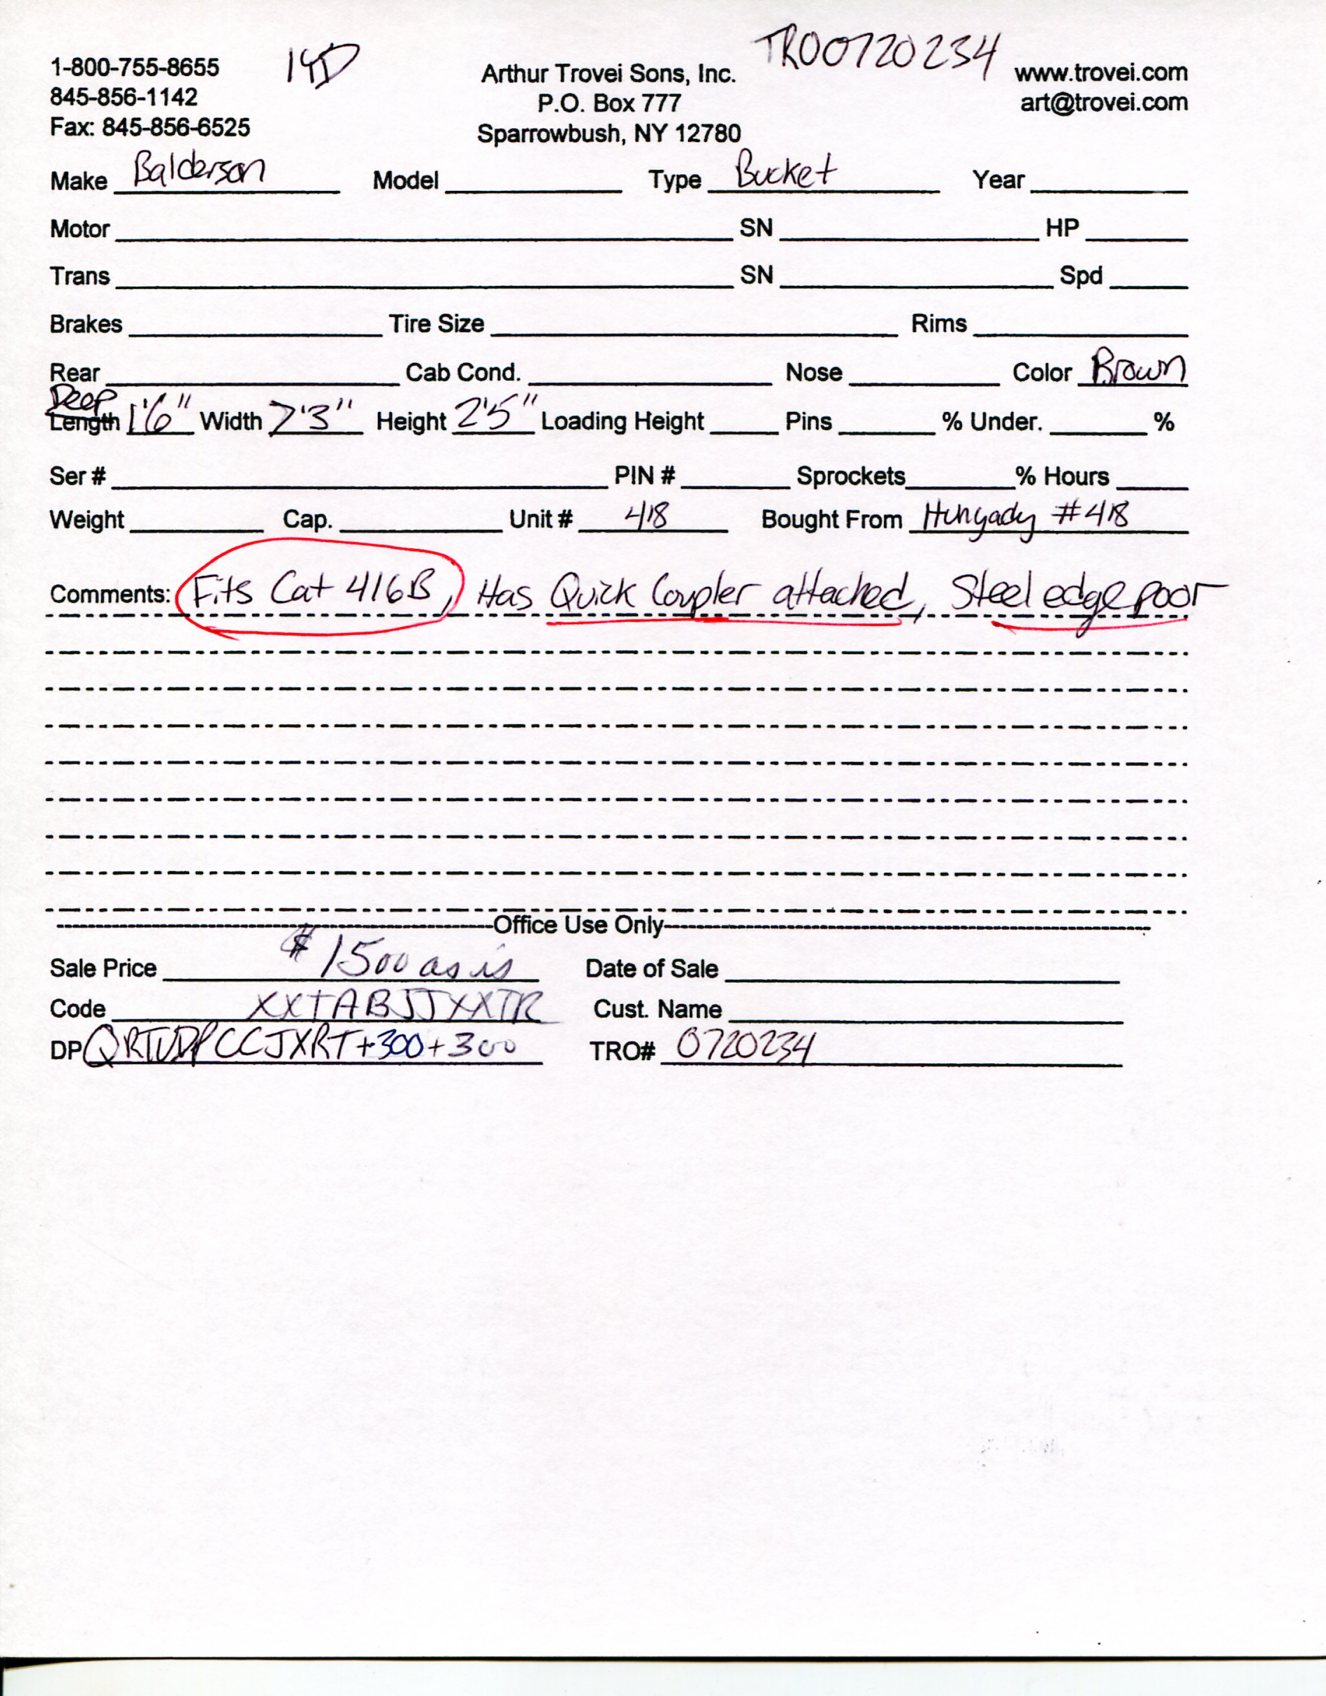 1-800-755-8655 Arthur Trovei Sons, Inc. TRO0720234 www.trovei.com
845-856-1142 P.O. Box 777 art@trovei.com
Fax: 845-856-6525 Sparrowbush, NY 12780
Make Balderson Model Type Bucket Year
Motor SN HP
Trans SN Spd
Brakes Tire Size Rims
Rear Cab Cond. Nose Color Brown
Deep
Length 1'6" Width 7'3" Height 2'5" Loading Height Pins % Under. %
Ser # PIN # Sprockets % Hours
Weight Cap. Unit # 418 Bought From Hungady #418
Comments: Fits Cat 416B, Has Quick Coupler attached, Steel edge poor
Office Use Only
Sale Price $1500 as is Date of Sale
Code XXTABJJXXTR Cust. Name
DP QRTVDPCCJXRT+300+300 TRO# 0720234